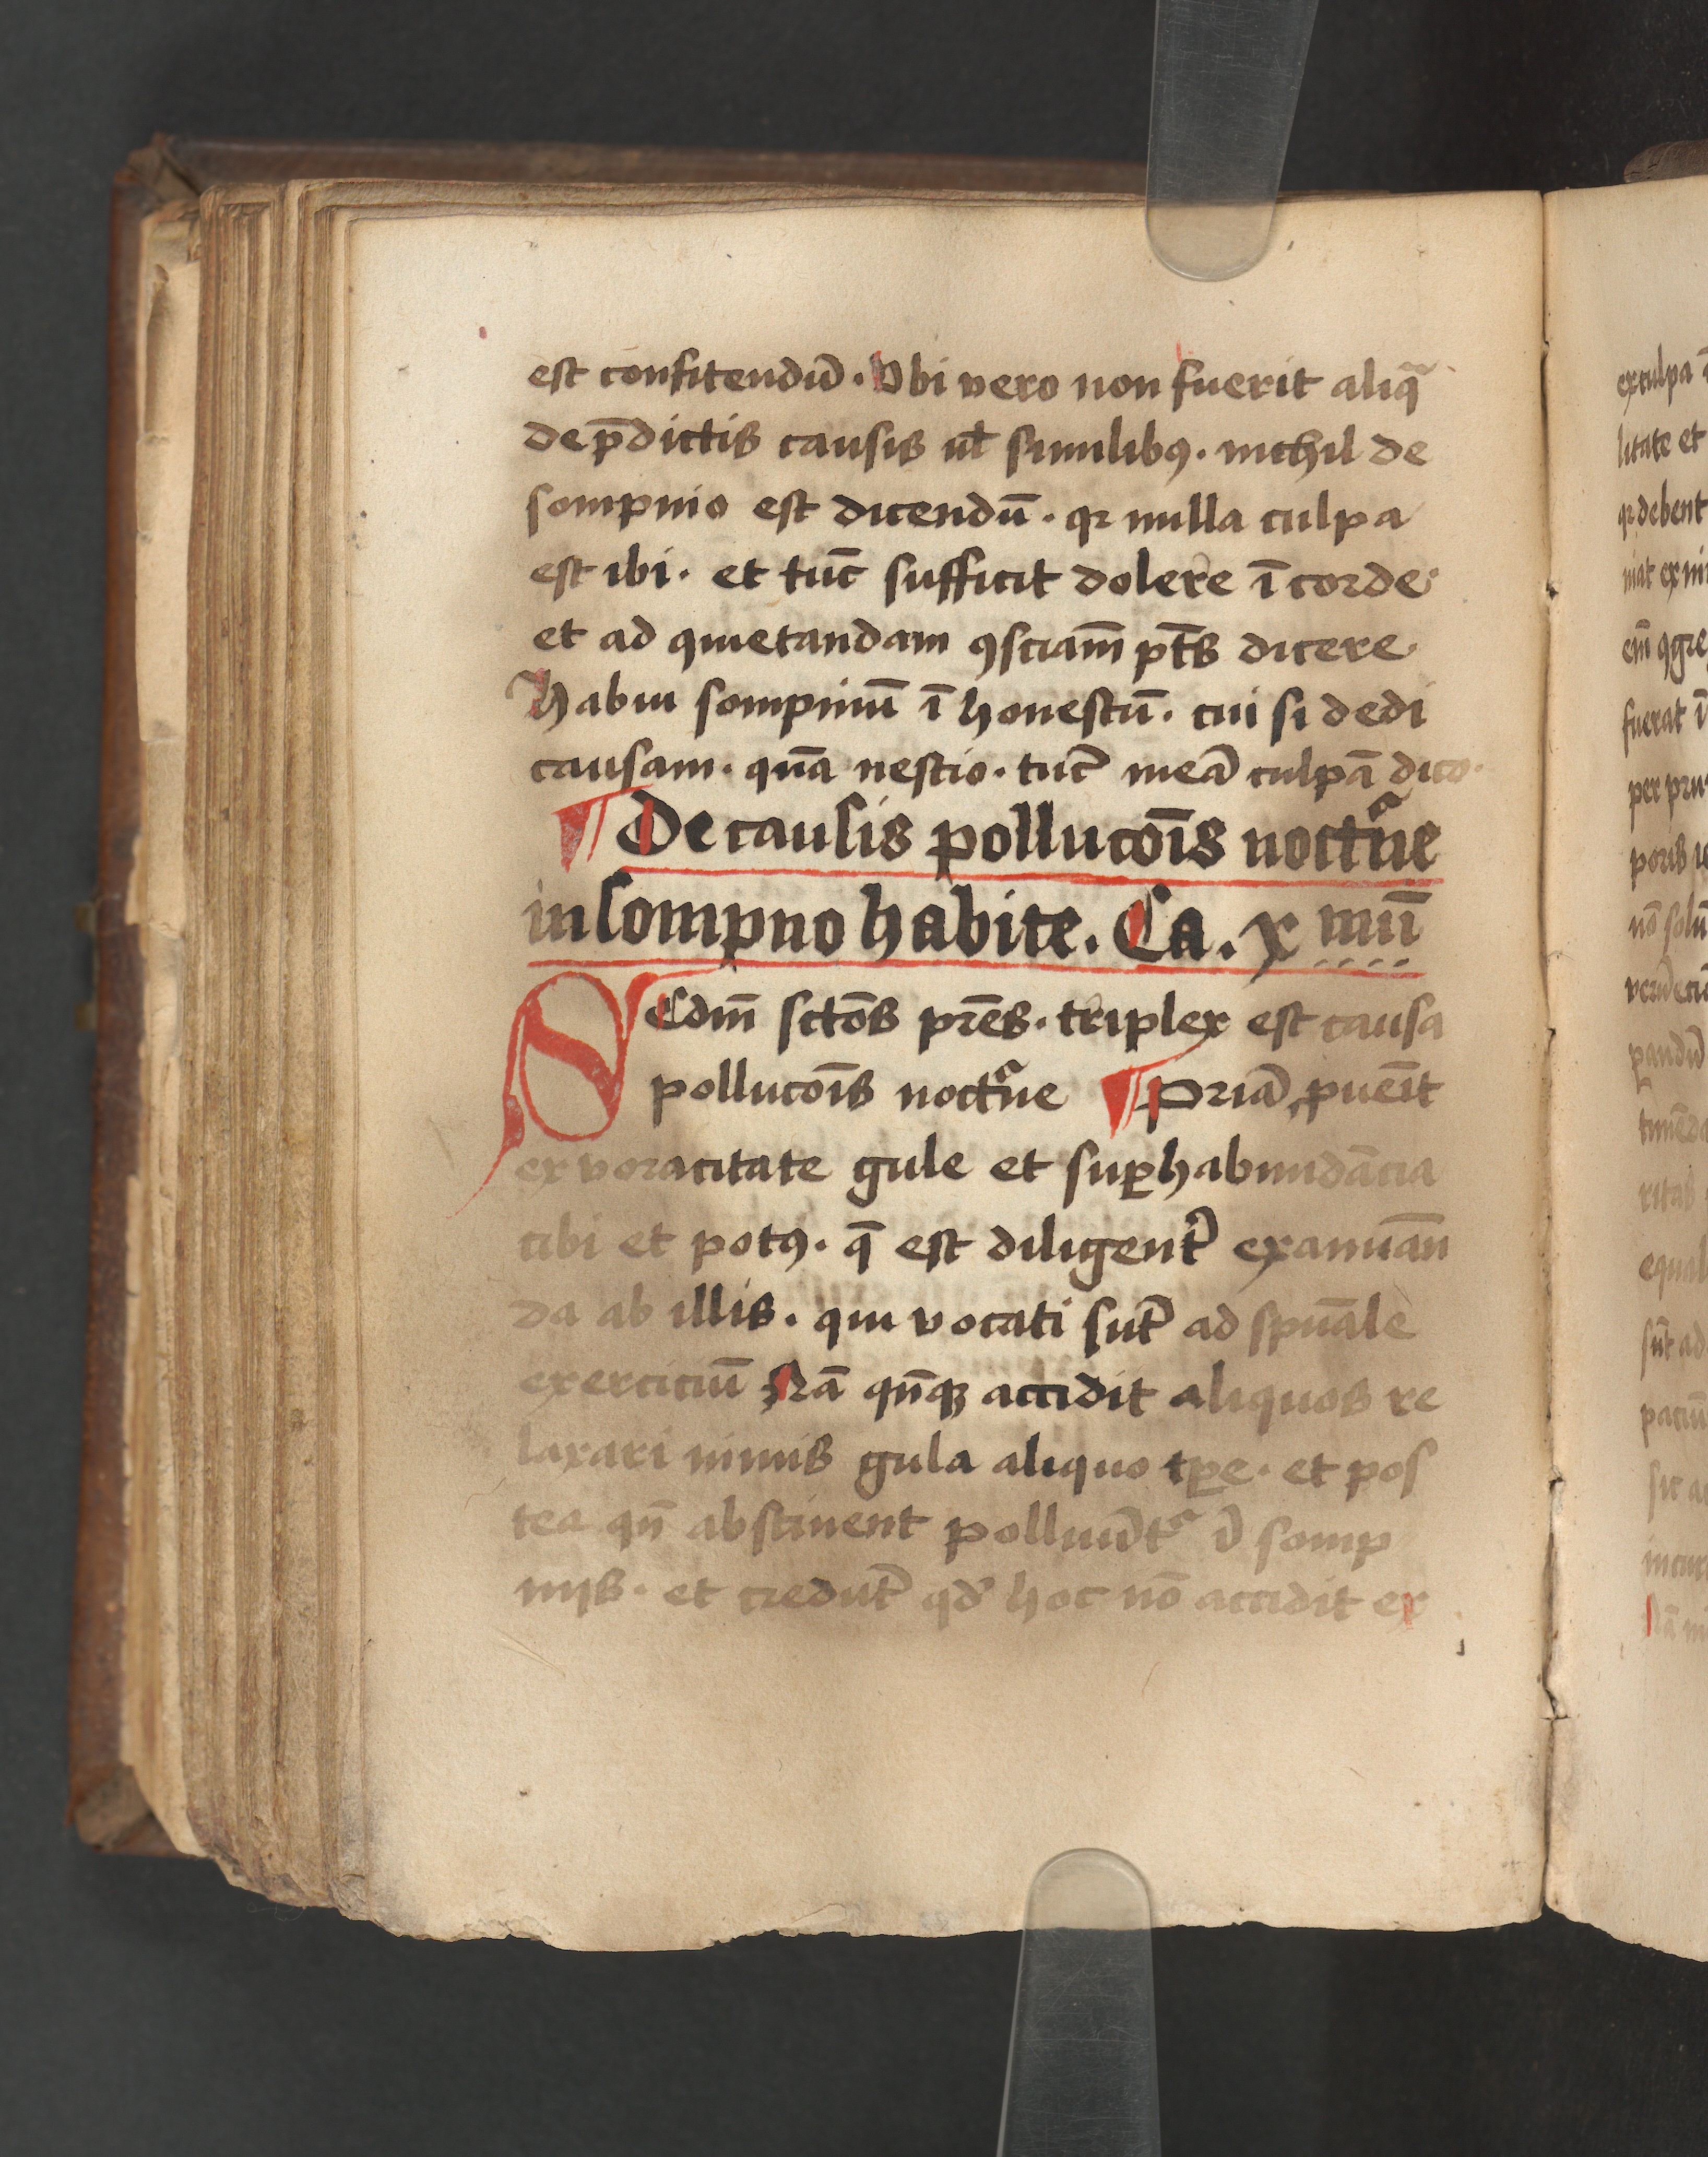 est confitendū. Vbi vero non fuerit aliqͣ
de p̄dictis causis ul̄ similibꝰ. nichil de
sompnio est dicendū. qꝛ nulla culpa
est ibi. et tūc sufficit dolere ī corde
et ad quietandam ꝯsciam̄ pt̄s dicere.
Habui sompniū ī honestū. cui si dedi
causam. quā nescio. tūc meā culpā dico.
¶ De causis pollucōis noctͬne
in sompno habite. Ca. x iiii
SEcdm̄ sctōs pr̄es. triplex est causa
pollucōis noctͬne ¶ Priā ꝓuēit
ex voracitate gule et suꝑhabundācia
cibi et potꝰ. q̄ est diligent̄ examīan
da ab illis. qui vocati sūt ad spūale
exerciciū Nā qn̄qꝫ accidit aliquos re
laxari nimis gula aliquo tꝑe. et pos
tea qn̄ abstinent polluūtͬ ī somp
niis. et credūt qd̓ hoc nō accidit ex